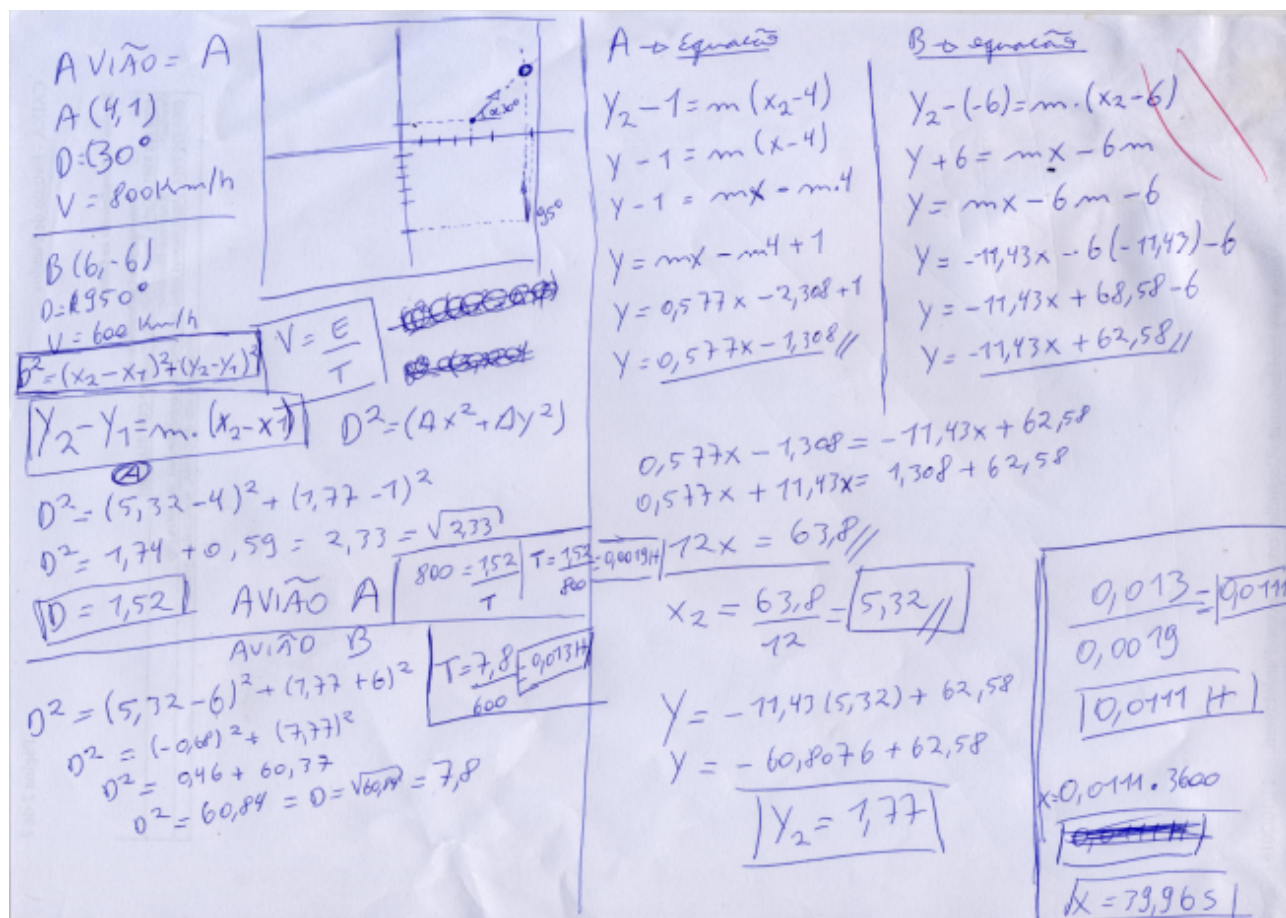 AVIÃO = A
A(4,1)
D=(30°
V = 800Km/h
B(6,-6)
V = 600 Km/h
D²=(x₂-x₁)²+(Y₂-Y₁)²
V = E/T
Y₂-Y₁=m.(x₂-x1)
D²=(Δx²+Δy²)
A
D²=(5,32-4)²+(1,77-1)²
D²=1,74+0,59=2,33=√2,33
D=1,52 AVIÃO A
800=1,52/T T=1,52/800=0,0019H
AVIÃO B
T=7,8/600=0,013H
D²=(5,32-6)²+(1,77+6)²
D²=(-0,68)²+(7,77)²
D²=0,46+60,37
D²=60,84=D=√60,84=7,8
30°
95°
A → Equação
Y₂-1=m(x₂-4)
y-1=m(x-4)
y-1=mx-m.4
y=mx-m4+1
y=0,577x-2,308+1
y=0,577x-1,308//
B → equação
Y₂-(-6)=m.(x₂-6)
y+6=mx-6m
y=mx-6m-6
y=-11,43x-6(-11,43)-6
y=-11,43x+68,58-6
y=-11,43x+62,58//
0,577x-1,308=-11,43x+62,58
0,577x+11,43x=1,308+62,58
12x=63,8//
x₂=63,8/12=5,32//
Y=-11,43(5,32)+62,58
Y=-60,8076+62,58
Y₂=1,77
0,013/0,0019=0,0111
0,0111 H
x=0,0111.3600
x=39,96s